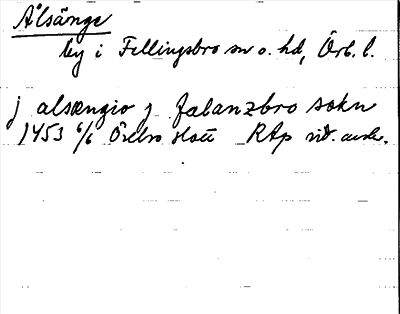 Ålsänge
by i Fellingsbro sn o. hd, Örb. l.
j alsængio j falanzbro sokn
1453 6/6 Örebro slott RAp vid. avskr.